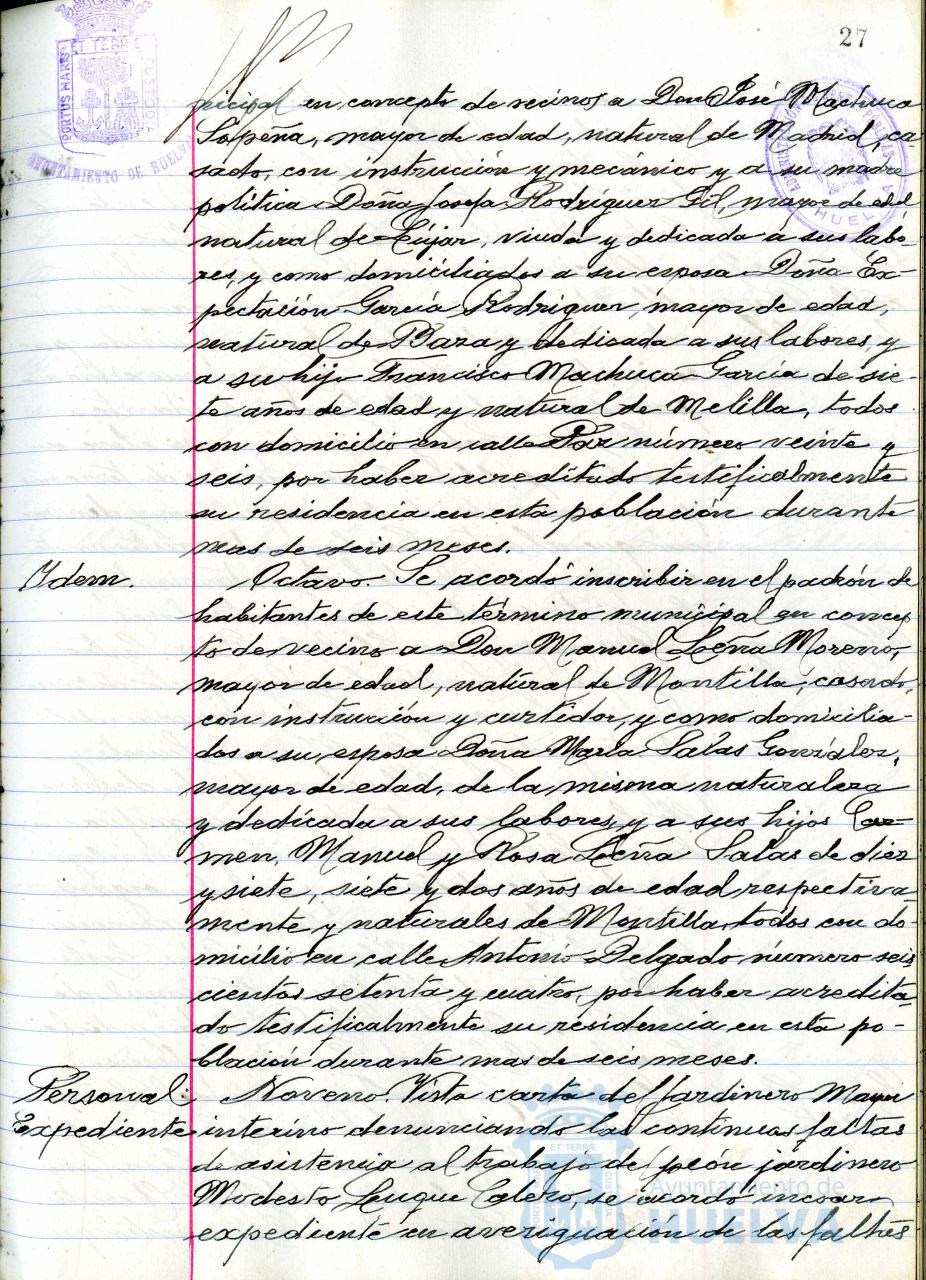 27
PORTUS MARIS ET TERRE CUSTODIA
AYUNTAMIENTO DE HUELVA
nicipal en concepto de vecinos a Don José Machuca
Lapeña, mayor de edad, natural de Madrid, ca-
sado, con instrucción y mecánico y a su madre
politica Doña Josefa Rodríguez Gil, mayor de edad
natural de Lújar, viuda y dedicada a sus labo-
res, y como domiciliados a su esposa Doña Ex-
pectación García Rodriguez, mayor de edad,
natural de Baza y dedicada a sus labores, y
a su hijo Francisco Machuca García de sie-
te años de edad y natural de Melilla, todos
con domicilio en calle Paz número veinte y
seis, por haber acreditado testificalmente
su residencia en esta población durante
mas de seis meses.
Idem.
Octavo. Se acordó inscribir en el padrón de
habitantes de este término municipal en concep
to de vecino a Don Manuel Leña Moreno,
mayor de edad, natural de Montilla, casado,
con instrucción y curtidor, y como domicilia-
dos a su esposa Doña María Salas González,
mayor de edad, de la misma naturaleza
y dedicada a sus labores, y a sus hijos Car-
men, Manuel y Rosa Leña Salas de diez
y siete, siete y dos años de edad respectiva-
mente y naturales de Montilla, todos con do-
micilio en calle Antonio Delgado número seis
cientos setenta y cuatro, por haber acredita-
do testificalmente su residencia en esta po-
blación durante mas de seis meses.
Personal:
Expediente
Noveno. Vista carta del Jardinero Mayor
interino denunciando las continuas faltas
de asistencia al trabajo del peón jardinero
Modesto Luque Calero, se acordó incoar
expediente en averiguación de las faltas
Ayuntamiento de
HUELVA